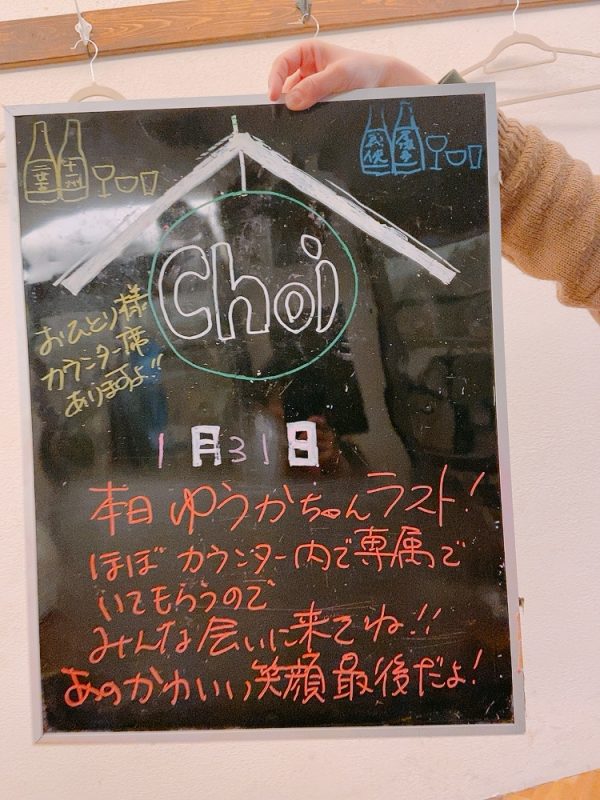 二世古
十一州
義侠
羅臼
Choi
おひとり様
カウンター席
ありますよ!!
1月31日
本日ゆうかちゃんラスト!
ほぼカウンター内で専属で
いてもらうので
みんな会いに来てね!!
あのかわいい笑顔最後だよ!